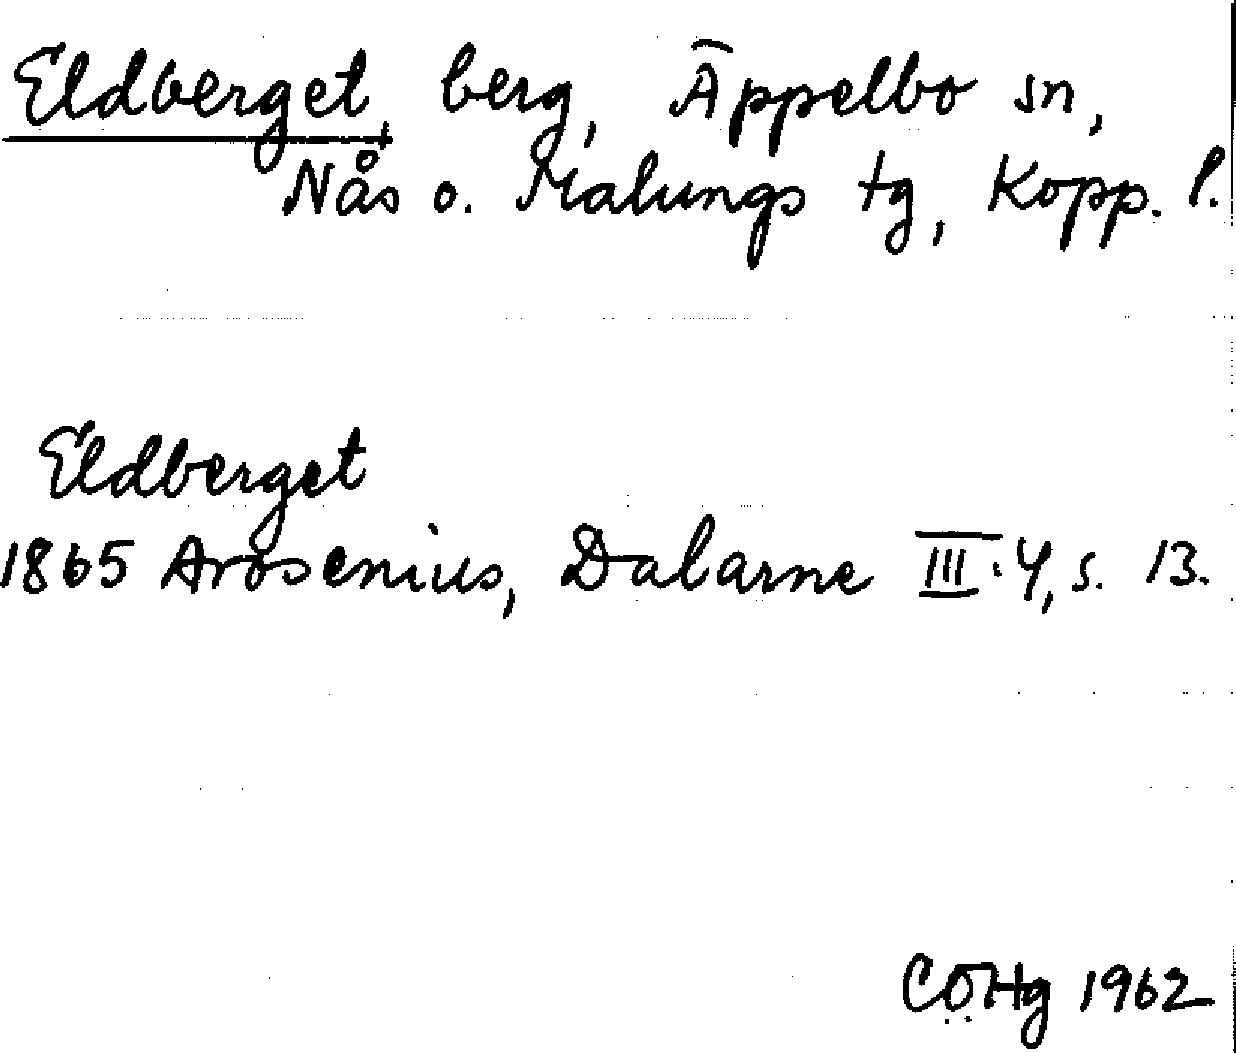 Eldberget, berg, Äppelbo sn,
Nås o. Malungs tg, Kopp. l.
Eldberget
1865 Arosenius, Dalarne III:4, s. 13.
CÖHg 1962